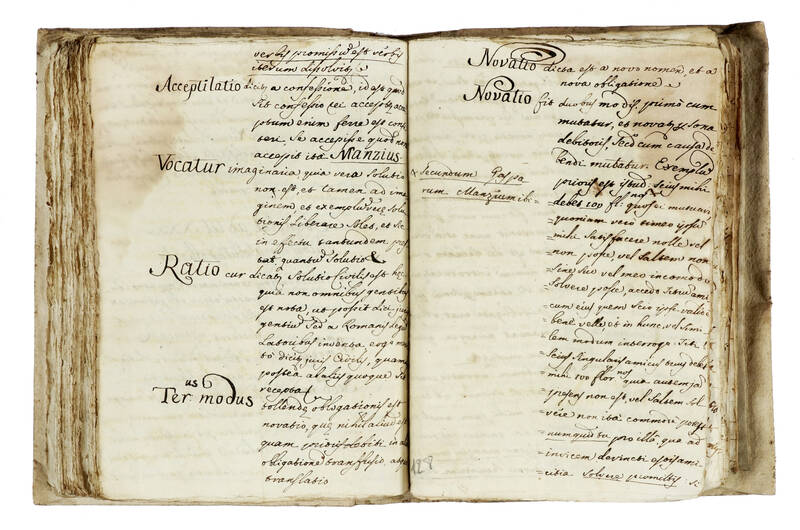 verbis promissū est verbis
iterum dissolvit
Acceptilatio dicit a confessione, id est quod
sit confessio rei acceptæ, acce
ptum enim ferre est con
teri, se accepisse quod non
accepit ita Manzius
Vocatur imaginaria quia vera solutio
non est, et tamen ad ima
ginem et exemplū veræ solu
tionis liberare solet, et sic
in effectu tantundem præ
stat, quantū solutio
Ratio cur dicatr solutio civilis est hæc
quia non omnibus gentibus
est nota, ut possit dici juris
gentiū sed a Romanis legis
latoribus inventa ergo
dicitr juris Civilis, quam
postea ab aliis quoque sit
recepta
Tertius modus
tollendæ obligationis est
novatio, quæ nihil aliud est
quam prioris debiti in aliā
obligationē transfusio, atque
translatio
Novatio dicta est a novo nomen, et a
nova obligatione
Novatio fit duobus modis, primo cum
mutatur, et novatr persona
debitoris secdo cum causa de
bendi mutatur. Exemplū
prioris est istud Seius mihi
debet 100 fl: quos ei mutuavi
quoniam vero timeo ipsū
mihi satisfacere nolle vel
non posse, vel saltem non
sine suo vel meo incomodo
solvere posse, accedo Titiū ami
cum eius quem scio ipsi valde
bene velle et in hunc, vel simi
lem modum interrogo: Titi
Seius singularis amicus tuus debet
mihi 100 flor nos quia autem jā
præsens non est, vel saltem sol
vere non ita commode potest
numquid tu pro illo, quia ad
invicem devincti estis ami
citia solvere promittis si
secundum Gaspa
rum Manzium ibi
128